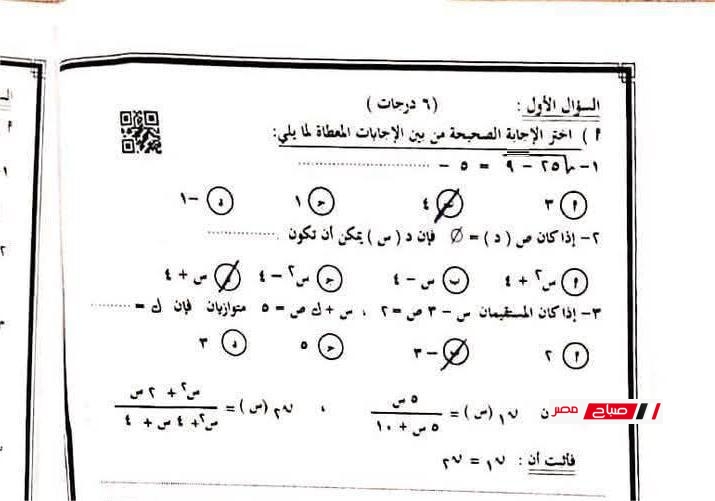 السؤال الأول : ( ٦ درجات )
٢ ) اختر الإجابة الصحيحة من بين الإجابات المعطاة لما يلي:
١- √٢٥ - ٩ = ٥ - ..............
٢ ٣ ب ٤ ج ١ د -١
٢- إذا كان ص ( د ) = ∅ فإن د ( س ) يمكن أن تكون ..............
٢ س٢ + ٤ ب س - ٤ ج س٢ - ٤ د س + ٤
٣- إذا كان المستقيمان س - ٣ ص = ٢ ، س + ك ص = ٥ متوازيان فإن ك = ........
٢ ٢ ب -٣ ج ٥ د ٣
ن١ (س) = ٥ س / ٥ س + ١٠ ، ن٢ (س) = س٢ + ٢ س / س٢ + ٤ س + ٤
صباح مصر
فأثبت أن : ن١ = ن٢